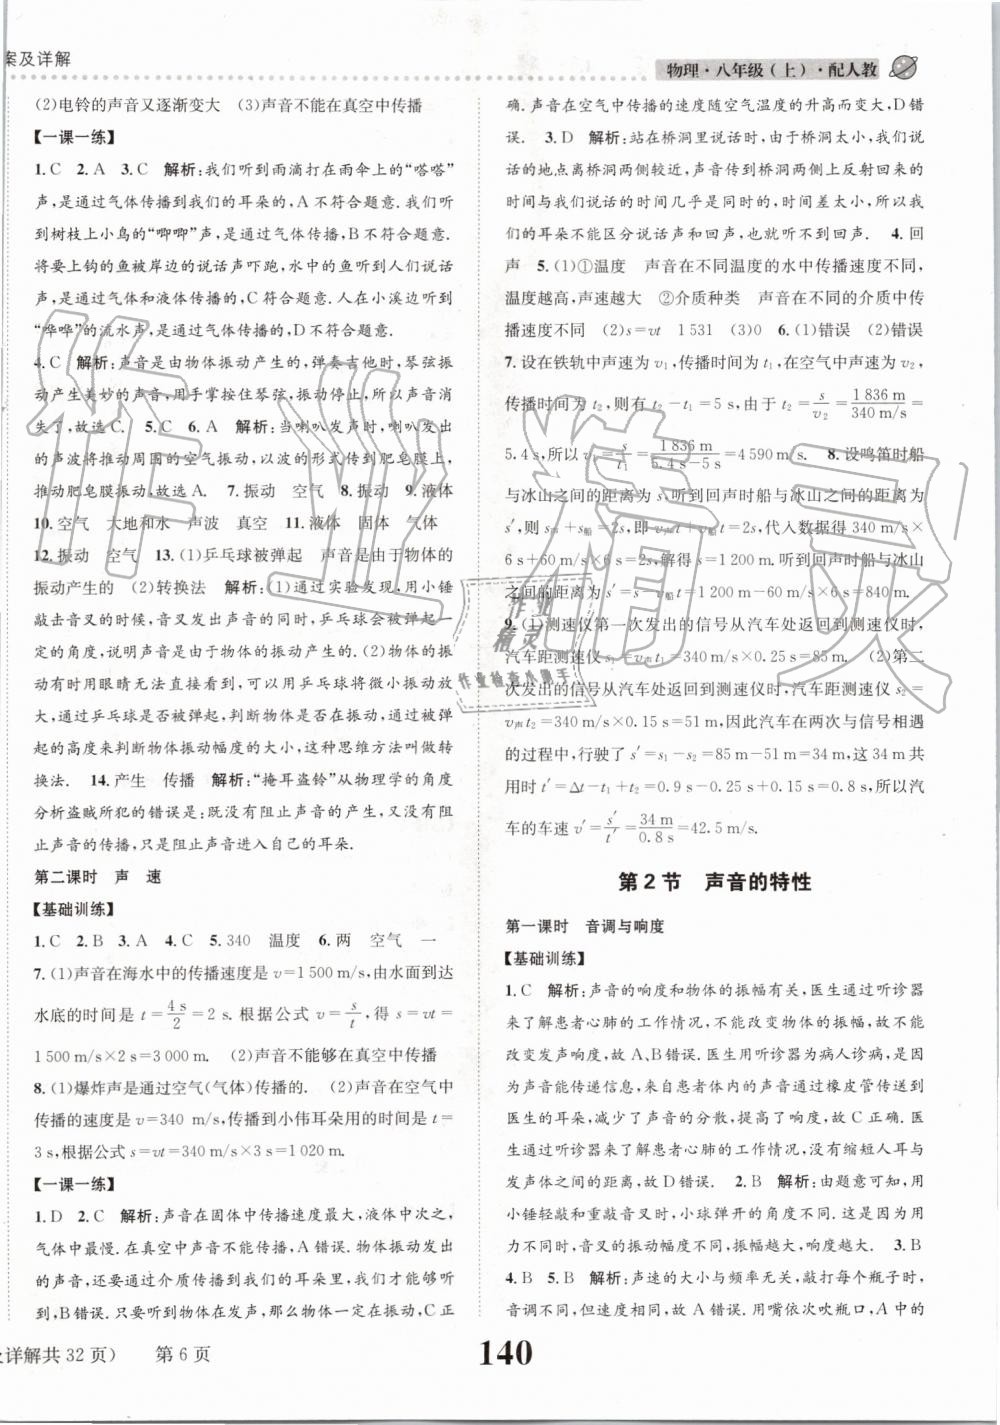 案及详解
物理·八年级(上)·配人教
(2)电铃的声音又逐渐变大　(3)声音不能在真空中传播
【一课一练】
1. C　2. A　3. C　解析:我们听到雨滴打在雨伞上的“嗒嗒”
声,是通过气体传播到我们的耳朵的,A 不符合题意. 我们听
到树枝上小鸟的“唧唧”声,是通过气体传播的,B 不符合题意.
将要上钩的鱼被岸边的说话声吓跑,水中的鱼听到人们说话
声,是通过气体和液体传播的,C 符合题意. 人在小溪边听到
“哗哗”的流水声,是气体传播的,D 不符合题意.
4. C　解析:声音是由物体振动产生的,弹奏吉他时,琴弦振
动产生美妙的声音,用手掌按住琴弦,振动停止,所以声音消
失了,故选 C.　5. C　6. A　解析:当喇叭发声时,喇叭发出
的声波将推动周围的空气振动,以波的形式传到肥皂膜上,
推动肥皂膜振动,故选 A.　7. 振动　空气　8. 振动　9. 液体
10. 空气　大地和水　声波　真空　11. 液体　固体　气体
12. 振动　空气　13. (1)乒乓球被弹起　声音是由于物体的
振动产生的　(2)转换法　解析:(1)通过实验发现,用小锤
敲击音叉的时候,音叉发出声音的同时,乒乓球会被弹起一
定的角度,说明声音是由于物体的振动产生的. (2)物体的振
动有时用眼睛无法直接看到,可以用乒乓球将微小振动放
大,通过乒乓球是否被弹起,判断物体是否在振动,通过弹
起的高度来判断物体振动幅度的大小,这种思维方法叫做转
换法.　14. 产生　传播　解析:“掩耳盗铃”从物理学的角度
分析盗贼所犯的错误是:既没有阻止声音的产生,又没有阻
止声音的传播,只是阻止声音进入自己的耳朵.
第二课时　声　速
【基础训练】
1. C　2. B　3. A　4. C　5. 340　温度　6. 两　空气　一
7. (1)声音在海水中的传播速度是 v=1 500 m/s,由水面到达
水底的时间是 t=4 s/2=2 s. 根据公式 v=s/t,得 s=vt=
1 500 m/s×2 s=3 000 m.　(2)声音不能够在真空中传播
8. (1)爆炸声是通过空气(气体)传播的.　(2)声音在空气中
传播的速度是 v=340 m/s,传播到小伟耳朵用的时间是 t=
3 s,根据公式 s=vt=340 m/s×3 s=1 020 m.
【一课一练】
1. D　2. C　解析:声音在固体中传播速度最大,液体中次之,
气体中最慢. 在真空中声音不能传播,A 错误. 物体振动发出
的声音,还要通过介质传到我们的耳朵里,我们才能够听
到,B 错误. 只要听到物体在发声,那么物体一定在振动,C 正
确. 声音在空气中传播的速度随空气温度的升高而变大,D 错
误.　3. D　解析:站在桥洞里说话时,由于桥洞太小,我们说
话的地点离桥洞两侧较近,声音从桥洞上反射回来的时间
与我们说话的时间几乎是同时的,时间差太小,所以我
们的耳朵不能区分说话声和回声,所以听不到回声.　4. 回
声　5. (1)①温度　声音在不同温度的水中传播速度不同,
温度越高,声速越大　②介质种类　声音在不同的介质中传
播速度不同　(2)s=vt　1 531　(3)0　6. (1)错误　(2)错误
7. 设在铁轨中声速为 v₁,传播时间为 t₁,在空气中声速为 v₂,
传播时间为 t₂,则有 t₂-t₁=5 s,由于 t₂=s/v₂=1 836 m/340 m/s=
5.4 s,所以 v₁=s/t₁=1 836 m/5.4 s-5 s=4 590 m/s.　8. 设鸣笛时船
与冰山之间的距离为 s,听到回声时船与冰山之间的距离为
s′,则 s声+s船=2s,即 v声t+v船t=2s,代入数据得 340 m/s×
6 s+60 m/s×6 s=2s,解得 s=1 200 m. 听到回声时船与冰山
之间的距离为 s′=s-v船t=1 200 m-60 m/s×6 s=840 m.
9. (1)测速仪第一次发出的信号从汽车处返回到测速仪时,
汽车距测速仪 s₁=v声t₁=340 m/s×0.25 s=85 m.　(2)第二
次发出的信号从汽车处返回到测速仪时,汽车距测速仪 s₂=
v声t₂=340 m/s×0.15 s=51 m,因此汽车在两次与信号相遇
的过程中,行驶了 s′=s₁-s₂=85 m-51 m=34 m,这 34 m 共
用时 t′=Δt-t₁+t₂=0.9 s-0.25 s+0.15 s=0.8 s,所以汽
车的车速 v′=s′/t′=34 m/0.8 s=42.5 m/s.
第 2 节　声音的特性
第一课时　音调与响度
【基础训练】
1. C　解析:声音的响度和物体的振幅有关,医生通过听诊器
来了解患者心肺的工作情况,不能改变物体的振幅,故不能
改变发声响度,故 A、B 错误. 医生用听诊器为病人诊病,是因
为声音能传递信息,来自患者体内的声音通过橡皮管传送到
医生的耳朵,减少了声音的分散,提高了响度,故 C 正确. 医
生通过听诊器来了解患者心肺的工作情况,没有缩短人耳与
发声体之间的距离,故 D 错误.　2. B　解析:由题意可知,使
用小锤轻敲和重敲音叉时,小球弹开的角度不同. 这是因为
用力不同,音叉的振动幅度不同,振幅越大,响度越大.　3. B
4. B　5. B　解析:声速的大小与频率无关,敲打每个瓶子时,
音调不同但速度相同,故 A 错误. 用嘴依次吹瓶口,A 中的
及详解共 32 页)　第 6 页
140
作业精灵
作业
精灵
作业检查小助手